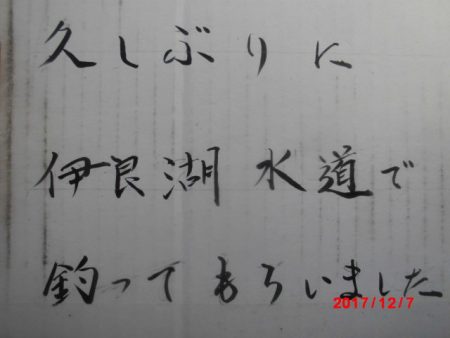 久しぶりに
伊良湖水道で
釣ってもらいました
2017/12/7